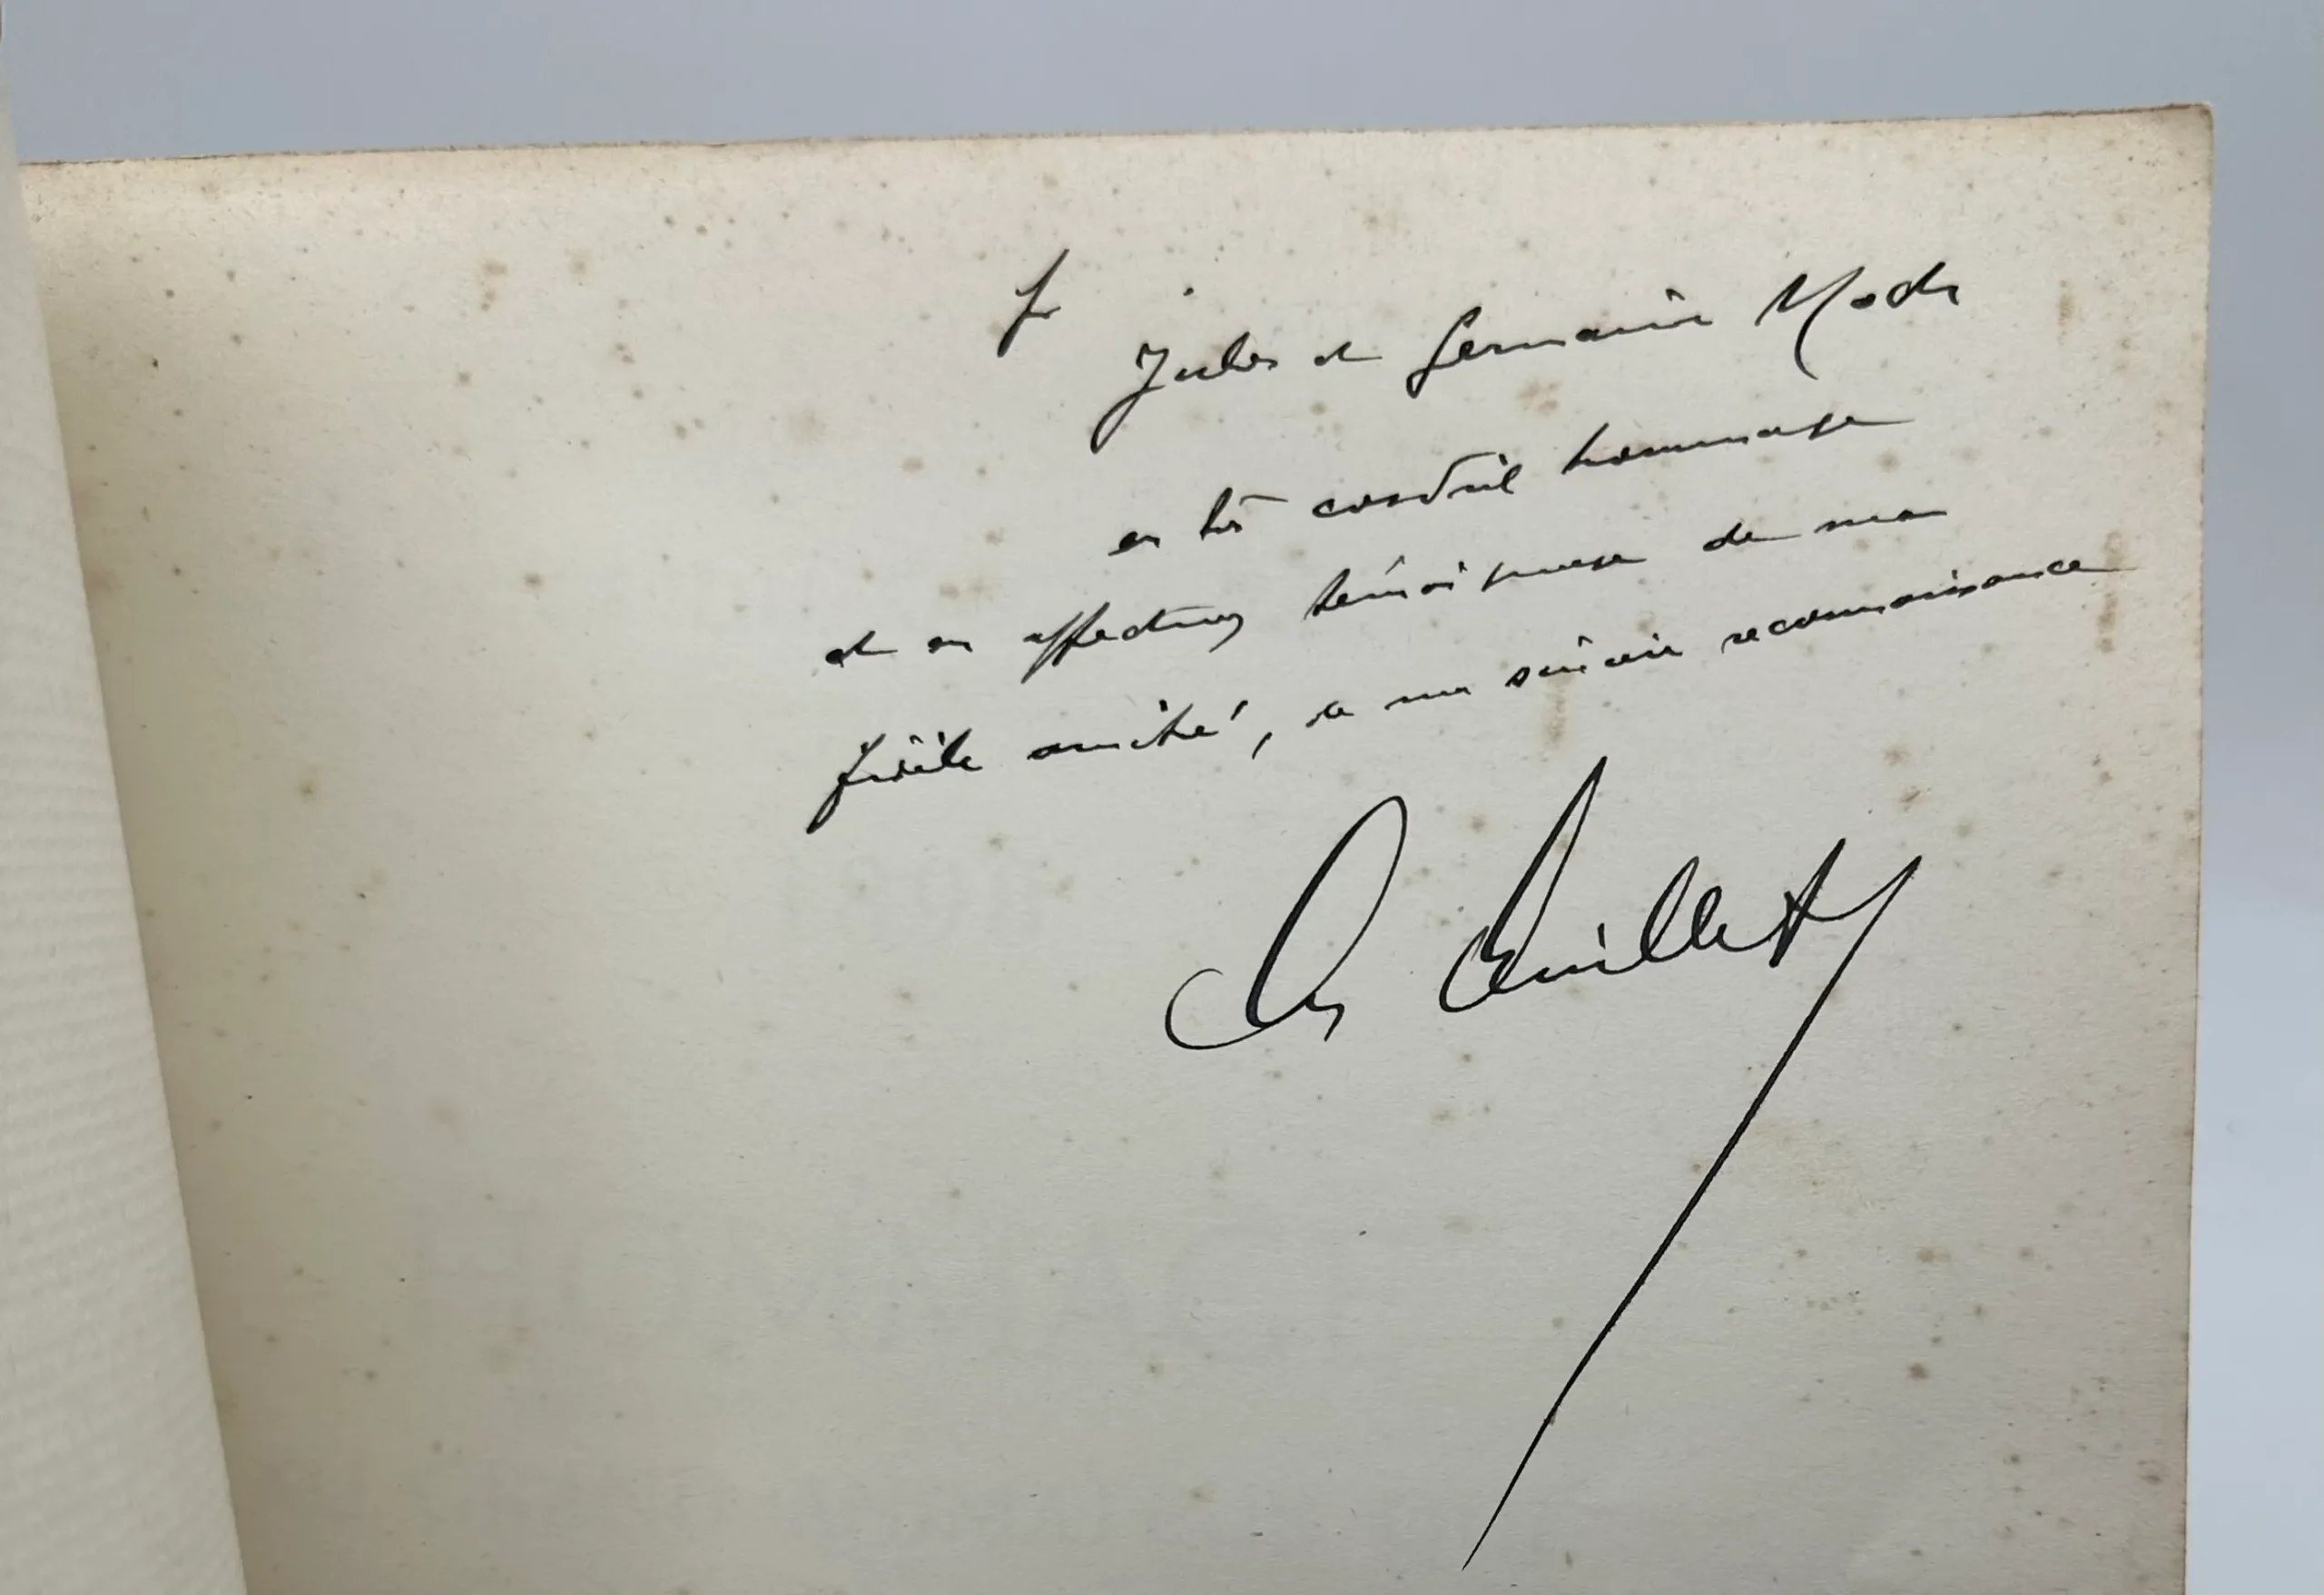 à
Jules et Germaine Moch
en très cordial hommage
et en affectueux témoignage de ma
fidèle amitié, de ma sincère reconnaissance